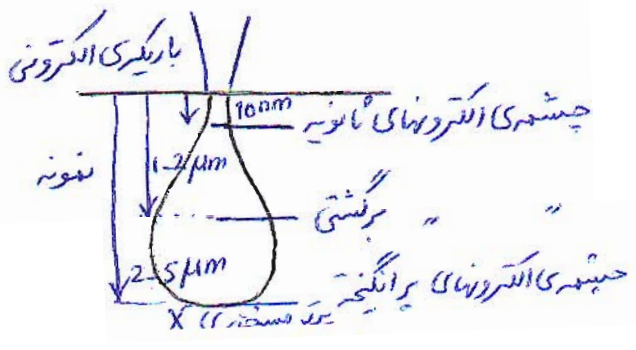 باریکه‌ی الکترونی
10nm
چشمه‌ی الکترونهای ثانویه
1-2 μm
نمونه
" " برگشتی
2-5 μm
چشمه‌ی الکترونهای برانگیخته
X